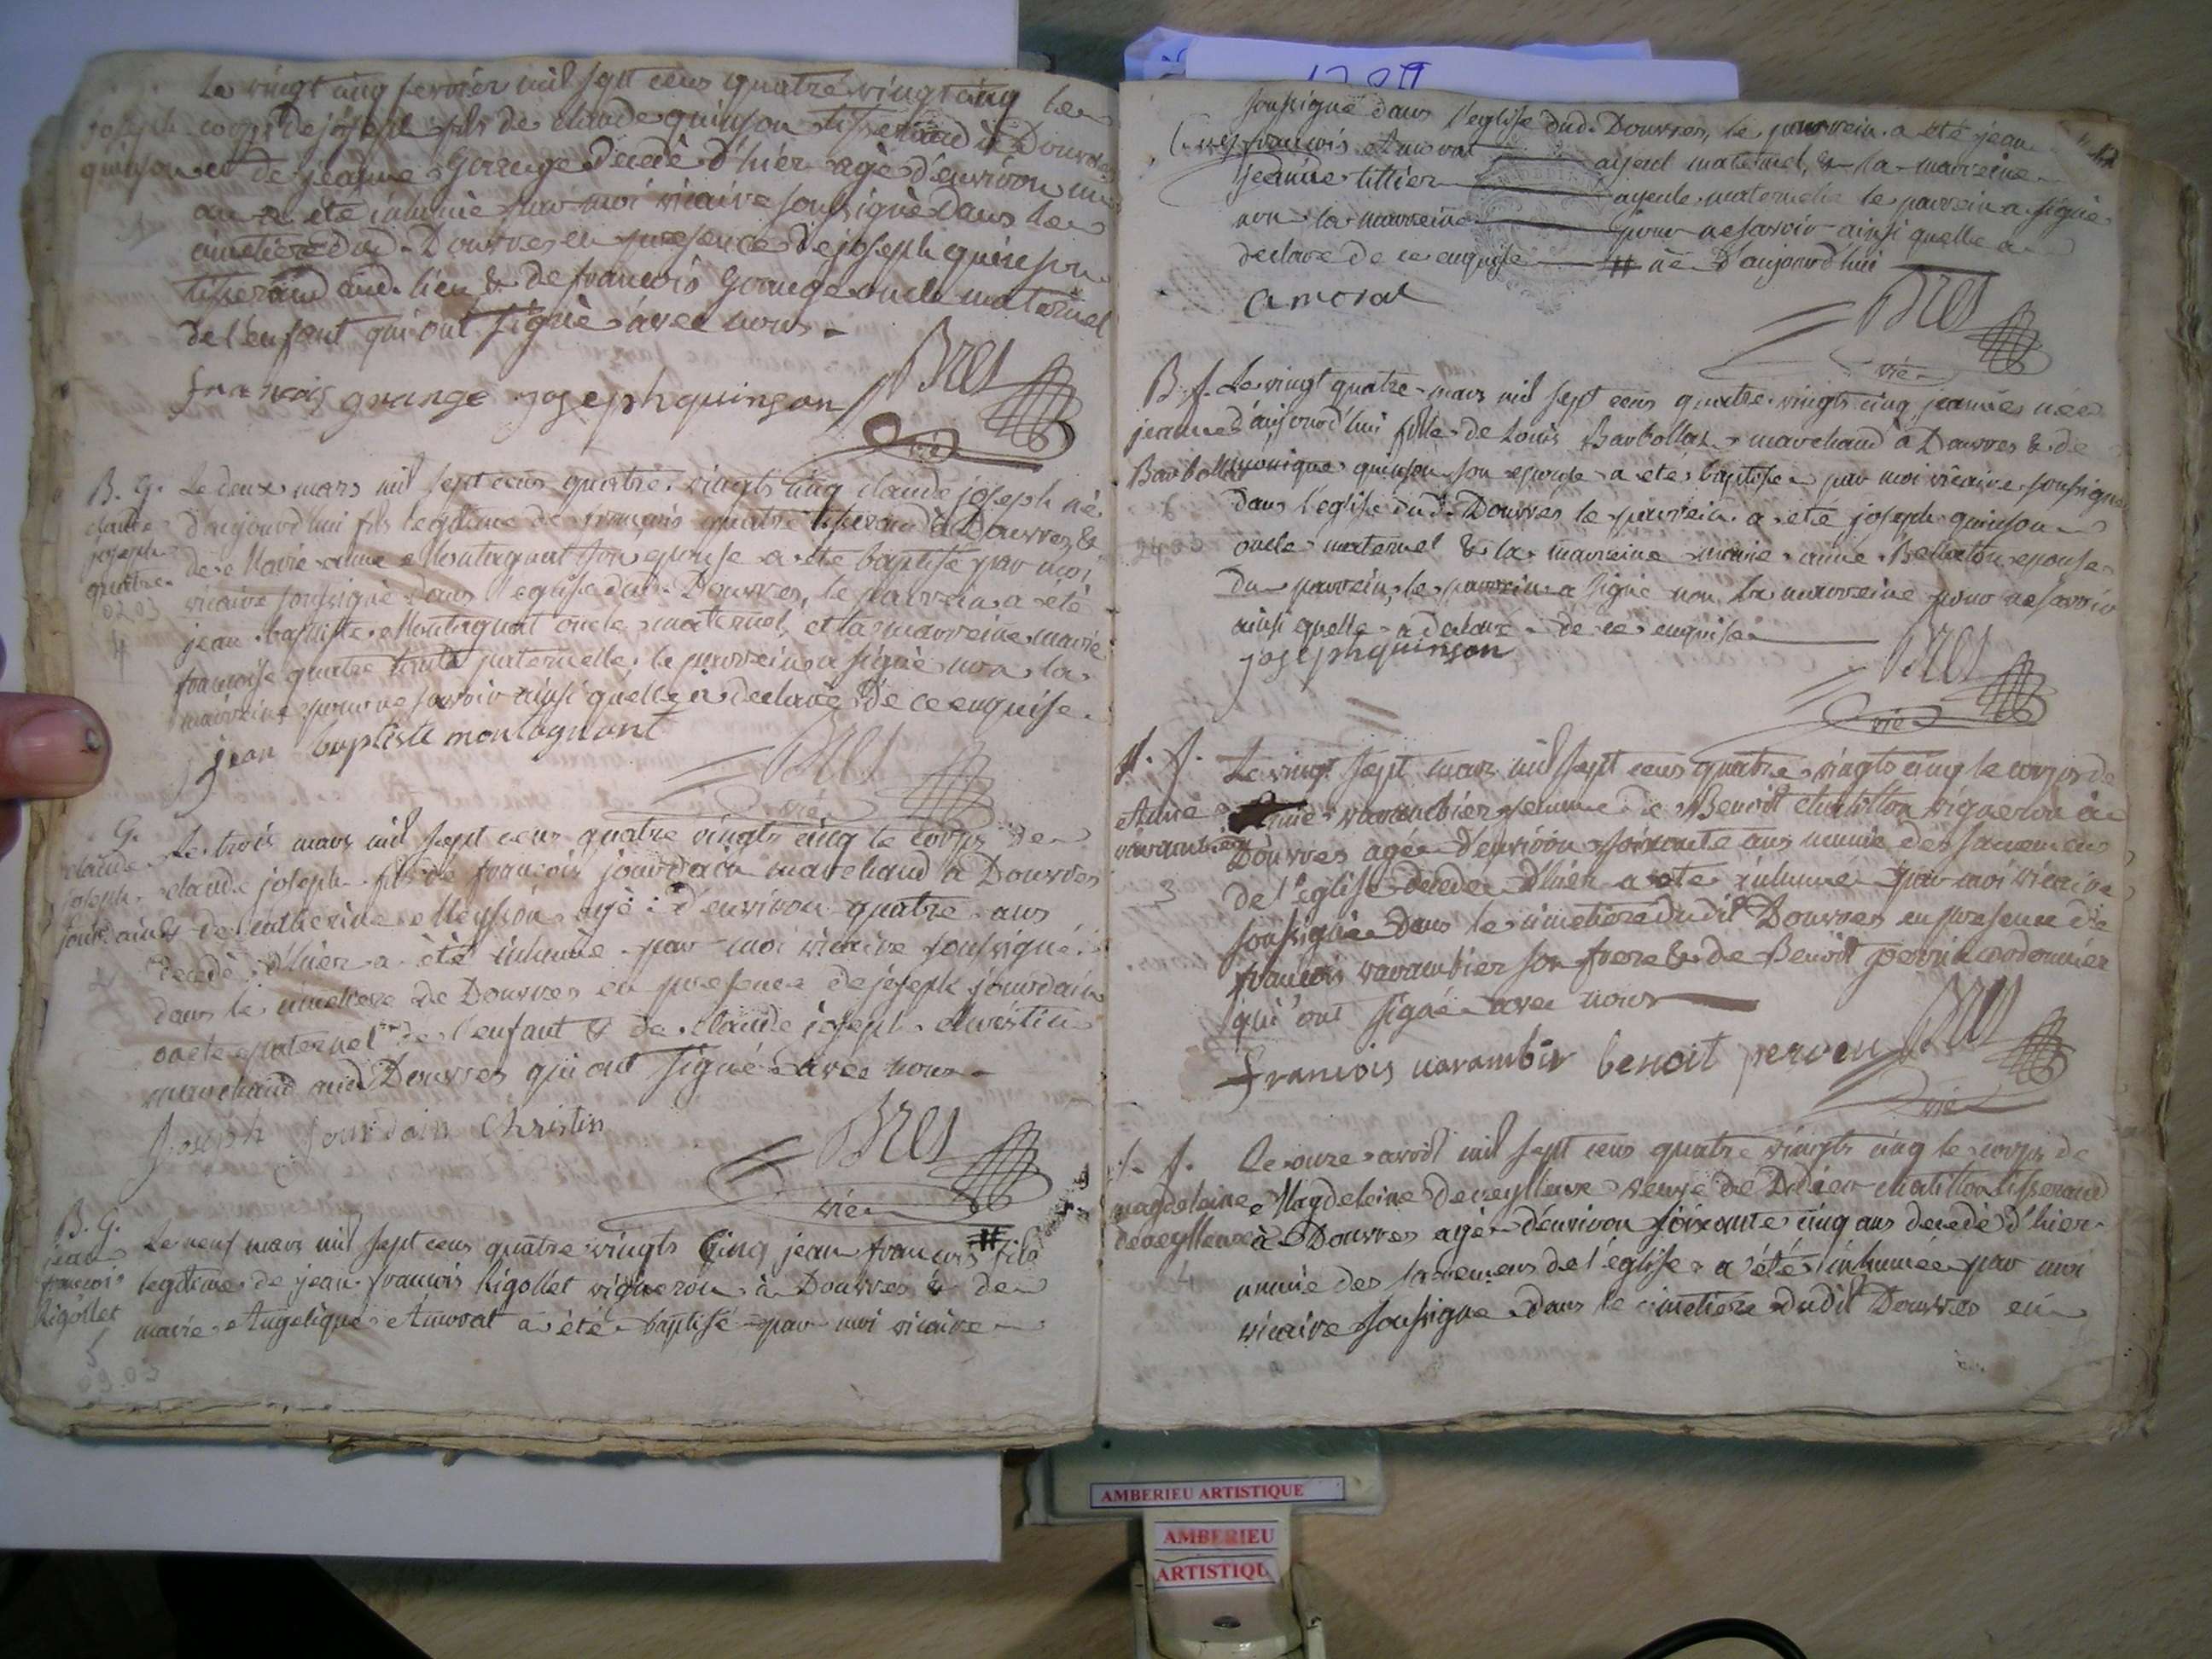 Le vingt cinq fevrier mil sept cens quatre vingt cinq le
joseph quinson
corps de joseph fils de claude quinson tisserand à Douvres
et de jeanne Grange decedè d'hier agè d'environ un
an a été inhumè par moi vicaire soussignè dans le
cimetiere dud. Douvres en presence de joseph quinson
tisserand aud. lieu & de francois Grange oncle maternel
de l'enfant qui ont signè avec nous
francois grange joseph quinson Bret
vic
B. G.
claude joseph quatre
02.03
4
Le deux mars mil sept cens quatre vingts cinq claude joseph nè
d'aujourd'hui fils legitime de francois quatre tisserand à Douvres &
de Marie anne Montagnat son epouse a été baptisé par moi
vicaire soussignè dans l'eglise dud. Douvres, le parrein a été
jean baptiste Montagnat oncle maternel, et la marreine marie
francoise quatre tante paternelle. le parrein a signè non la
marreine pour ne savoir ainsi quelle a declaré de ce enquise.
jean baptiste montagnant
Bret
vic
G.
claude joseph jourdain
Le trois mars mil sept cens quatre vingts cinq le corps de
claude joseph fils de francois jourdain marchand a Douvres
& de catherine agè d'environ quatre ans
decedè d'hier a été inhumè par moi vicaire soussigné
dans le cimetiere de Douvres en presence de joseph jourdain
oncle paternel de l'enfant & de claude joseph christin
marchand aud Douvres qui ont signé avec nous
Joseph Jourdain Christin
Bret
vic
B. G.
jean francois Rigollet
5
09.03
Le neuf mars mil sept cens quatre vingts cinq jean francois # fils
legitime de jean francois Rigollet vigneron à Douvres & de
marie Angelique Amorat a été baptisé par moi vicaire
12
soussigné dans l'eglise dud. Douvres, le parrein a été jean
francois Amorat ayeul maternel, & la marreine
jeanne tittier ayeule maternelle le parrein a signé
non la marreine pour ne savoir ainsi quelle a
declaré de ce enquise # nè d'aujourd'hui
amorat
Bret
vic
B. f.
jeanne Barbollat
24.03
Le vingt quatre mars mil sept cens quatre vingts cinq jeanne née
d'aujourd'hui fille de Louis Barbollat marchand à Douvres & de
monique quinson son epouse a été baptisée par moi vicaire soussigné
dans l'eglise dud. Douvres le parrein a été joseph quinson
oncle maternel & la marreine marie anne epouse
du parrein, le parrein a signé non la marreine pour ne savoir
ainsi quelle a declaré de ce enquise
joseph quinson
Bret
vic
f.
Anne varambier
3
Le vingt sept mars mil sept cens quatre vingts cinq le corps de
Anne varambier femme de Benoit chatillon vigneron à
Douvres agée d'environ soixante ans munie des sacremens
de l'eglise decedée d'hier a été inhumée par moi vicaire
soussigné dans le cimetiere dudit Douvres en presence de
francois varambier son frere & de Benoit cordonnier
qui ont signé avec nous
francois varambier benoit Bret
vic
f.
magdeleine
4
Le onze avril mil sept cens quatre vingts cinq le corps de
Magdeleine veuve de Didier chatillon tisserand
à Douvres agée d'environ soixante cinq ans decedè d'hier
munie des sacremens de l'église a été inhumée par moi
vicaire soussigné dans le cimetiere dudit Douvres en
AMBERIEU ARTISTIQUE
AMBERIEU
ARTISTIQU